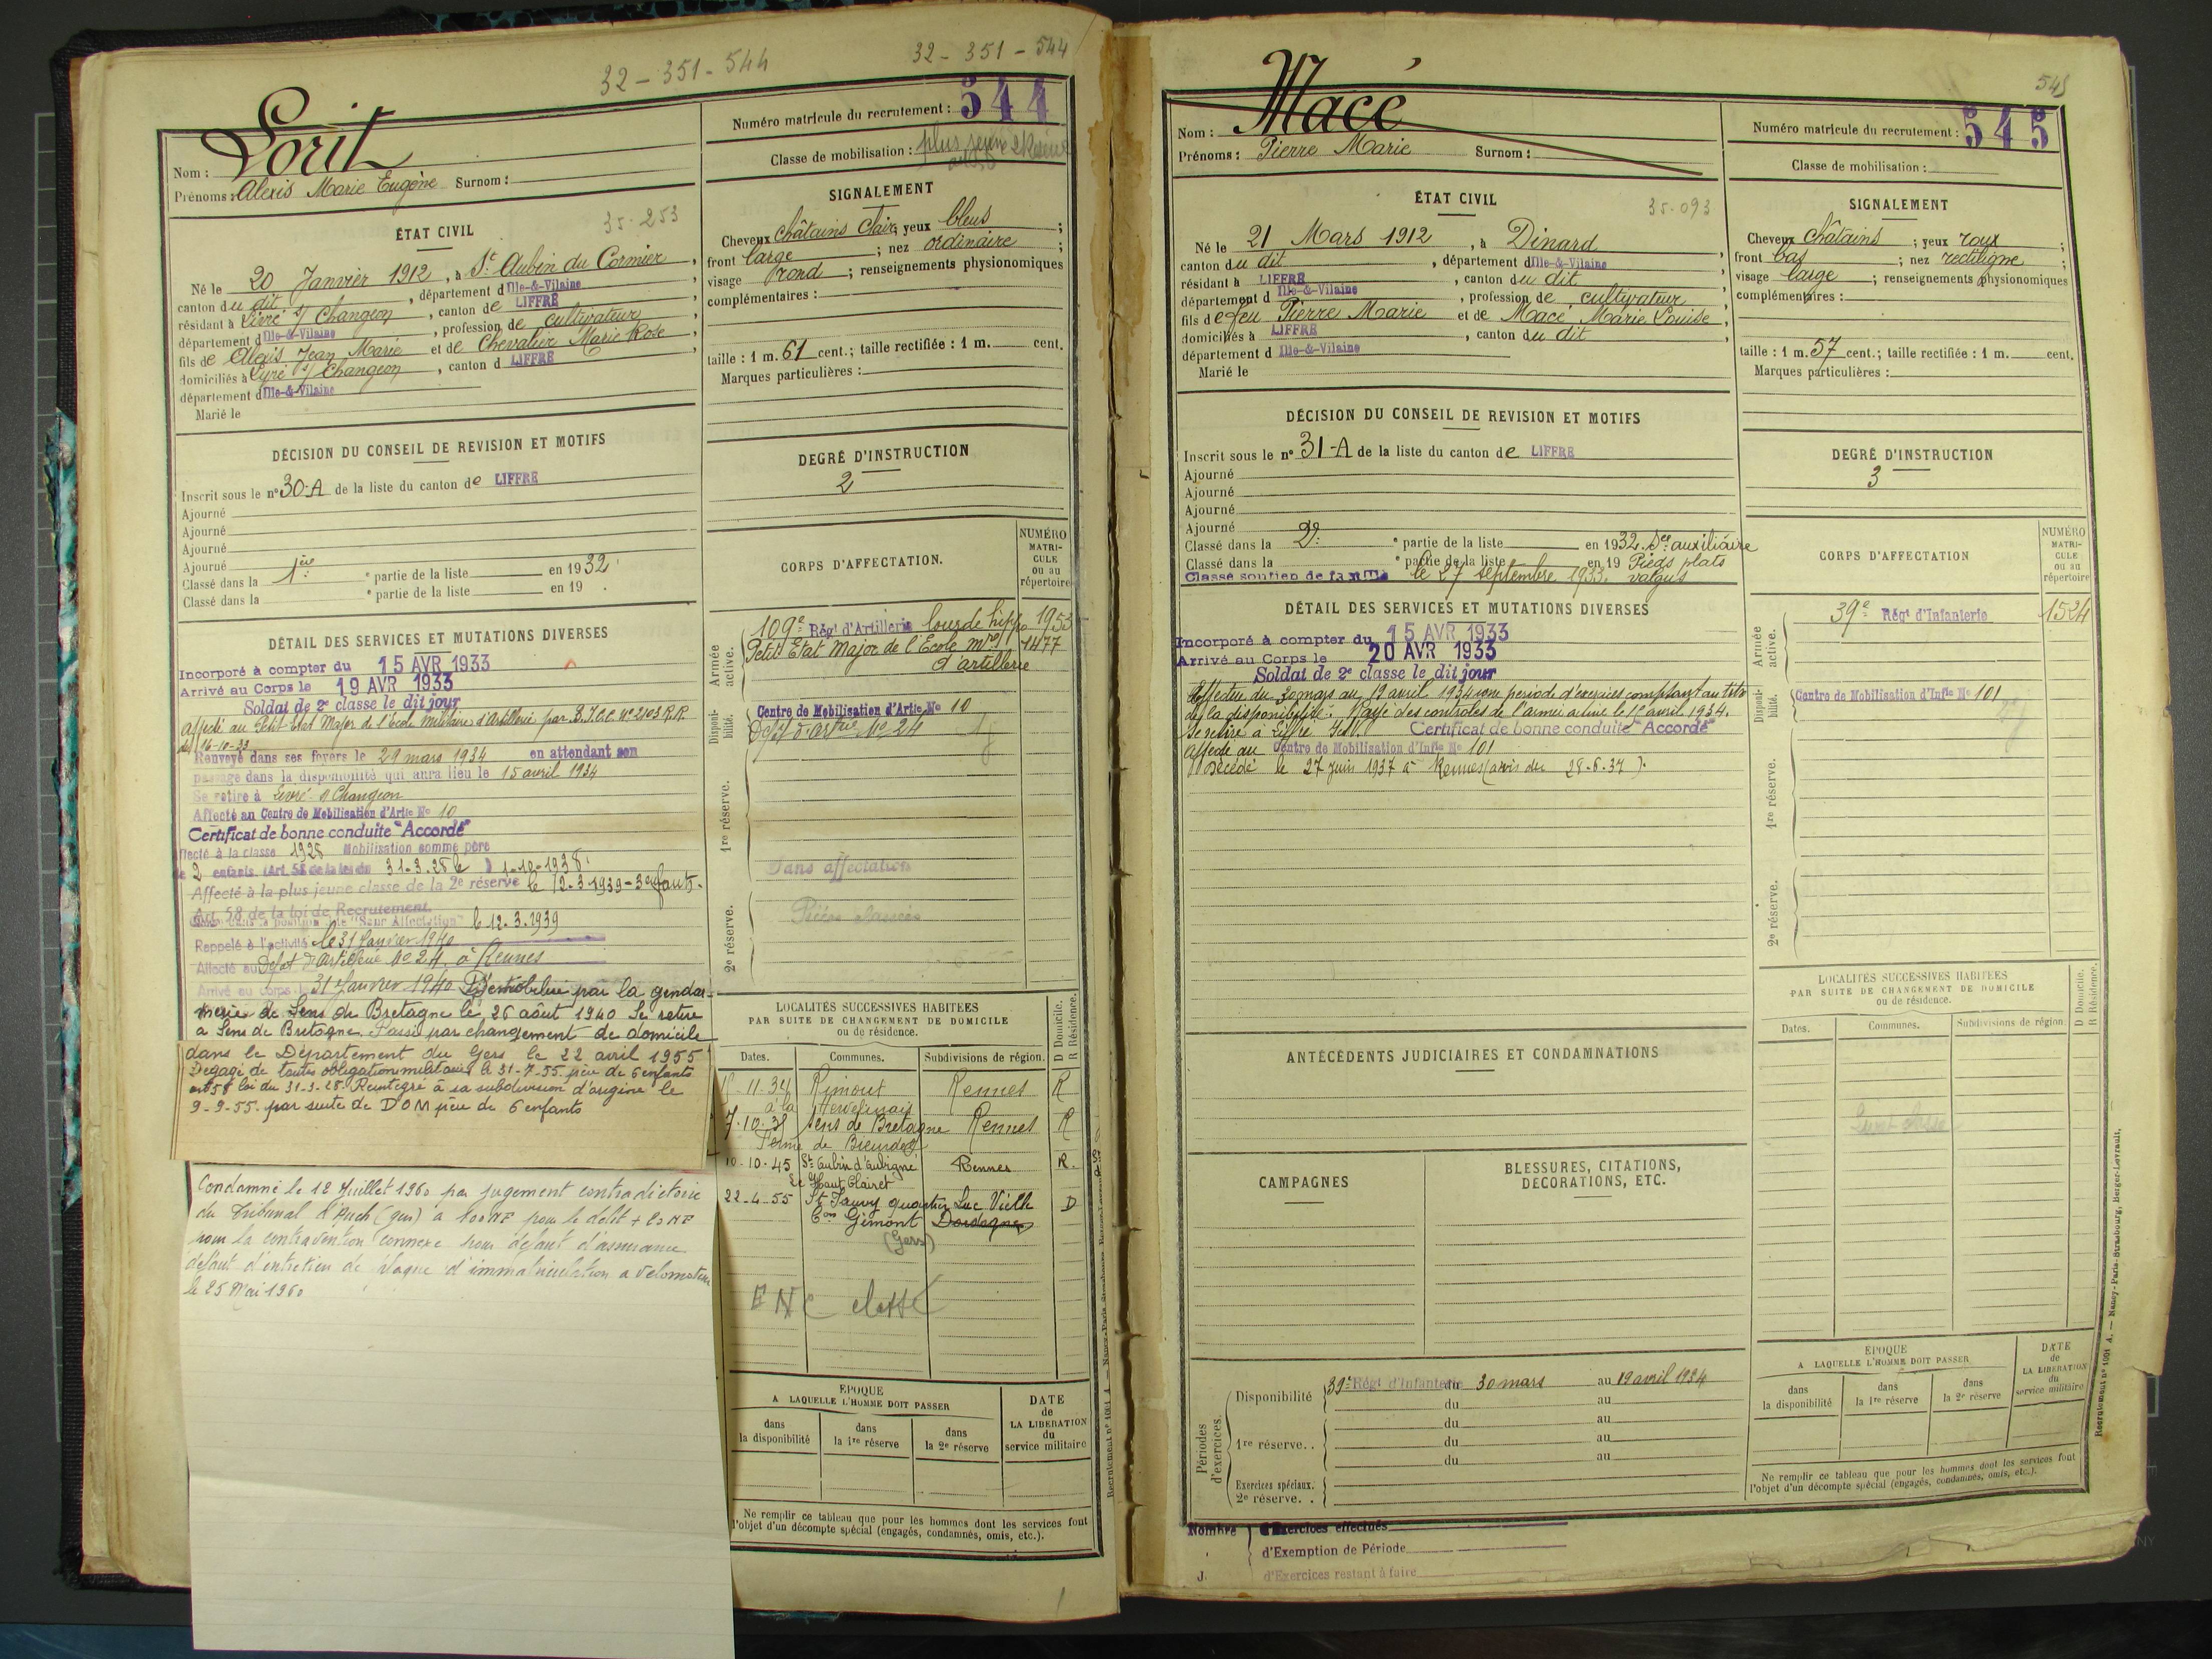 32-351-544
32-351-544
Nom : Lorit
Prénoms : Alexis Marie Eugène Surnom :
ÉTAT CIVIL
35-253
Né le 20 Janvier 1912, à St Aubin du Cormier,
canton du dit, département d Ille-&-Vilaine,
résidant à Livré s/ Changeon, canton de LIFFRÉ,
département d Ille-&-Vilaine, profession de cultivateur,
fils de Alexis Jean Marie et de Chevalier Marie Rose,
domiciliés à Livré s/ Changeon, canton d LIFFRÉ
département d Ille-&-Vilaine
Marié le
DÉCISION DU CONSEIL DE REVISION ET MOTIFS
Inscrit sous le n° 30-A de la liste du canton de LIFFRÉ
Ajourné
Ajourné
Ajourné
Ajourné
Classé dans la 1ère partie de la liste en 1932.
Classé dans la e partie de la liste en 19 .
DÉTAIL DES SERVICES ET MUTATIONS DIVERSES
Incorporé à compter du 15 AVR 1933
Arrivé au Corps le 19 AVR 1933
Soldat de 2e classe le dit jour
affecté au Petit Etat Major de l'Ecole militaire d'Artillerie par N° 2103 R.R.
16-10-33
Renvoyé dans ses foyers le 29 mars 1934 en attendant son
passage dans la disponibilité qui aura lieu le 15 avril 1934
Se retire à Livré s/ Changeon
Affecté au Centre de Mobilisation d'Artie No 10
Certificat de bonne conduite "Accordé"
Affecté à la classe 1928 Mobilisation comme père
de 2 enfants (Art. 58 de la loi du 31-3-28 le 1-10-1938.
Affecté à la plus jeune classe de la 2e réserve le 12-3-1939 - 3 enfants.
Art. 58 de la loi de Recrutement.
"Sans Affectation" le 12.3.1939
Rappelé à l'activité le 31 Janvier 1940
Affecté au Dépôt d'artillerie No 24 à Rennes
Arrivé au corps 31 Janvier 1940 Démobilisé par la gendar-
merie de Sens de Bretagne le 26 août 1940 Se retire
à Sens de Bretagne. Passé par changement de domicile
dans le Département du Gers le 22 avril 1955
Dégagé de toutes obligations militaires le 31-7-55 père de 6 enfants
art 58 loi du 31-3-28. Réintégré à sa subdivision d'origine le
9-9-55 par suite de DOM père de 6 enfants
Condamné le 12 Juillet 1960 par jugement contradictoire
du Tribunal d'Auch (gers) à 100 NF pour le délit + 20 NF
pour la contravention connexe pour défaut d'assurance
défaut d'entretien de plaque d'immatriculation a vélomoteur
le 25 Mai 1960
Numéro matricule du recrutement : 544
Classe de mobilisation : plus
SIGNALEMENT
Cheveux châtains clair; yeux bleus ;
front large ; nez ordinaire ;
visage rond ; renseignements physionomiques
complémentaires :
taille : 1 m. 61 cent.; taille rectifiée : 1 m. cent.
Marques particulières :
DEGRÉ D'INSTRUCTION
2
CORPS D'AFFECTATION.
NUMÉRO MATRI-CULE ou au répertoire
Armée active.
109e Régt d'Artillerie lourde hippo 1953
Petit Etat Major de l'Ecole mre 1477
d'artillerie
Disponi-bilité.
Centre de Mobilisation d'Artie No 10
Dépôt d'artie No 24
1re réserve.
Sans affectation
2e réserve.
LOCALITÉS SUCCESSIVES HABITÉES
PAR SUITE DE CHANGEMENT DE DOMICILE
ou de résidence.
D Domicile.
R Résidence.
Dates. Communes. Subdivisions de région.
15-11-34 Rimoux Rennes R
à la
7-10-35 Sens de Bretagne Rennes R
Ferme de
10-10-45 St Aubin d'Aubigné Rennes R.
Le Haut Clairet
22-4-55 St Sauvy quartier Luc Vielh D
Con Gimont Dordogne
(Gers)
ENC classé
ÉPOQUE
A LAQUELLE L'HOMME DOIT PASSER
dans la disponibilité
dans la 1re réserve
dans la 2e réserve
DATE de LA LIBÉRATION du service militaire
Ne remplir ce tableau que pour les hommes dont les services font
l'objet d'un décompte spécial (engagés, condamnés, omis, etc.).
545
Nom : Macé
Prénoms : Pierre Marie Surnom :
ÉTAT CIVIL
35-093
Né le 21 Mars 1912, à Dinard
canton du dit, département d Ille-&-Vilaine
résidant à LIFFRÉ, canton du dit,
département d Ille-&-Vilaine, profession de cultivateur
fils de feu Pierre Marie et de Macé Marie Louise,
domiciliés à LIFFRÉ, canton du dit,
département d Ille-&-Vilaine
Marié le
DÉCISION DU CONSEIL DE REVISION ET MOTIFS
Inscrit sous le n° 31-A de la liste du canton de LIFFRÉ
Ajourné
Ajourné
Ajourné
Ajourné
Classé dans la 2e partie de la liste en 1932. Sce auxiliaire
Classé dans la e partie de la liste en 19 Pieds plats
Classé soutien de famille le 27 septembre 1933. valgus
DÉTAIL DES SERVICES ET MUTATIONS DIVERSES
Incorporé à compter du 15 AVR 1933
Arrivé au Corps le 20 AVR 1933
Soldat de 2e classe le dit jour
Effectue du 30 mars au 12 avril 1934 une période d'exercices comptant au titre
de la disponibilité. Rayé des contrôles de l'armée active le 15 avril 1934.
Se retire à Liffré Certificat de bonne conduite "Accordé"
Affecté au Centre de Mobilisation d'Infie No 101
Décédé le 27 juin 1937 à Rennes (avis du 28.6.37).
ANTÉCÉDENTS JUDICIAIRES ET CONDAMNATIONS
CAMPAGNES
BLESSURES, CITATIONS, DÉCORATIONS, ETC.
Périodes d'exercices.
Disponibilité 39e Régt d'Infanterie du 30 mars au 12 avril 1934
du au
du au
1re réserve.. du au
du au
Exercices spéciaux.
2e réserve. .
Nombre d'Exercices effectués
d'Exemption de Période
d'Exercices restant à faire
Numéro matricule du recrutement : 545
Classe de mobilisation :
SIGNALEMENT
Cheveux châtains ; yeux roux ;
front bas ; nez rectiligne ;
visage large ; renseignements physionomiques
complémentaires :
taille : 1 m. 57 cent.; taille rectifiée : 1 m. cent.
Marques particulières :
DEGRÉ D'INSTRUCTION
3
CORPS D'AFFECTATION
NUMÉRO MATRI-CULE ou au répertoire
Armée active.
39e Régt d'Infanterie 1524
Disponi-bilité.
Centre de Mobilisation d'Infie No 101
1re réserve.
2e réserve.
LOCALITÉS SUCCESSIVES HABITÉES
PAR SUITE DE CHANGEMENT DE DOMICILE
ou de résidence.
D Domicile.
R Résidence.
Dates. Communes. Subdivisions de région.
ÉPOQUE
A LAQUELLE L'HOMME DOIT PASSER
dans la disponibilité
dans la 1re réserve
dans la 2e réserve
DATE de LA LIBÉRATION du service militaire
Ne remplir ce tableau que pour les hommes dont les services font
l'objet d'un décompte spécial (engagés, condamnés, omis, etc.).
Recrutement n° 1001 A. — Nancy-Paris-Strasbourg, Berger-Levrault.